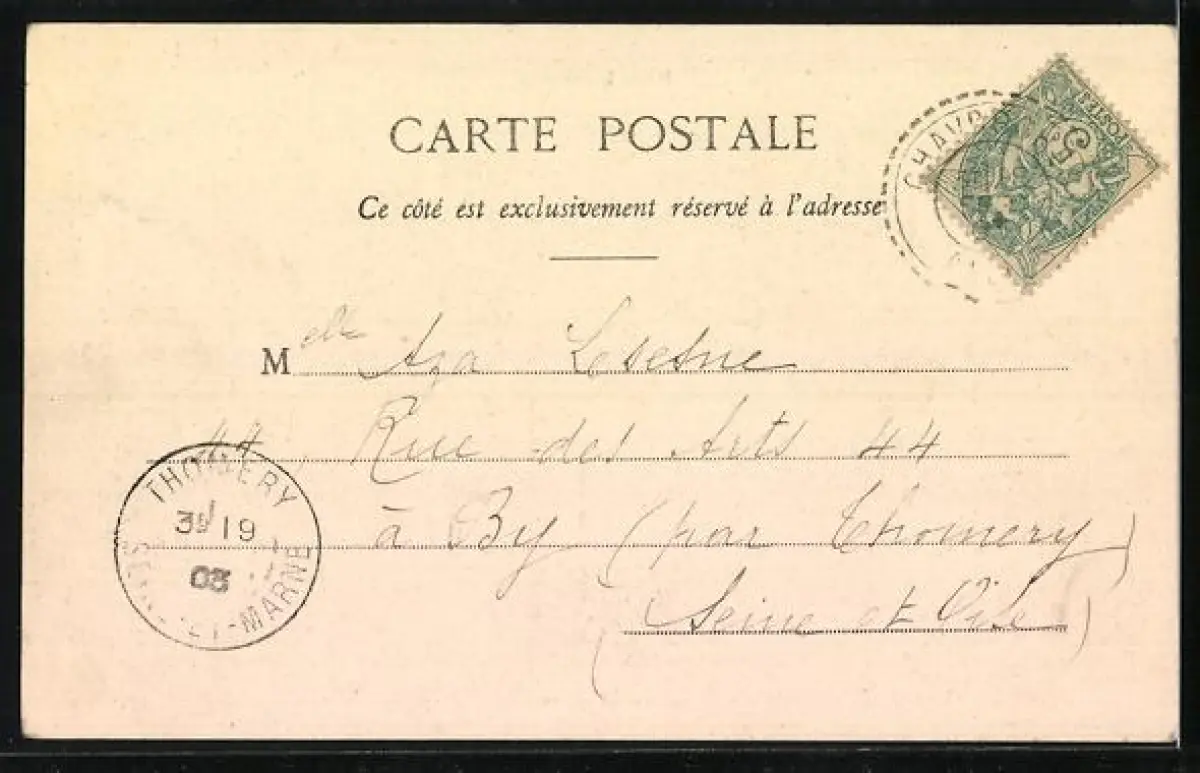 CARTE POSTALE
Ce côté est exclusivement réservé à l'adresse
Melle Aza Lesesne
44 Rue des Arts 44
à By (par Thomery)
(Seine et Oise)
THOMERY
19
03
ET-MARNE
5